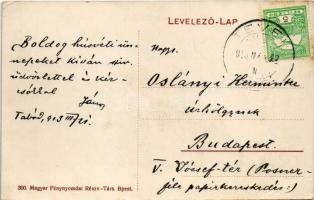 LEVELEZŐ-LAP
Boldog húsvéti ün-
nepeket kíván szív.
üdvözlettel
János
Tabód, 913 III/21.
Nagys.
Oslányi Hermínke
úrhölgynek
Budapest.
V. József-tér (Posner-
féle papírkereskedés:)
300. Magyar Fénynyomdai Részv.-Társ. Bpest.
5